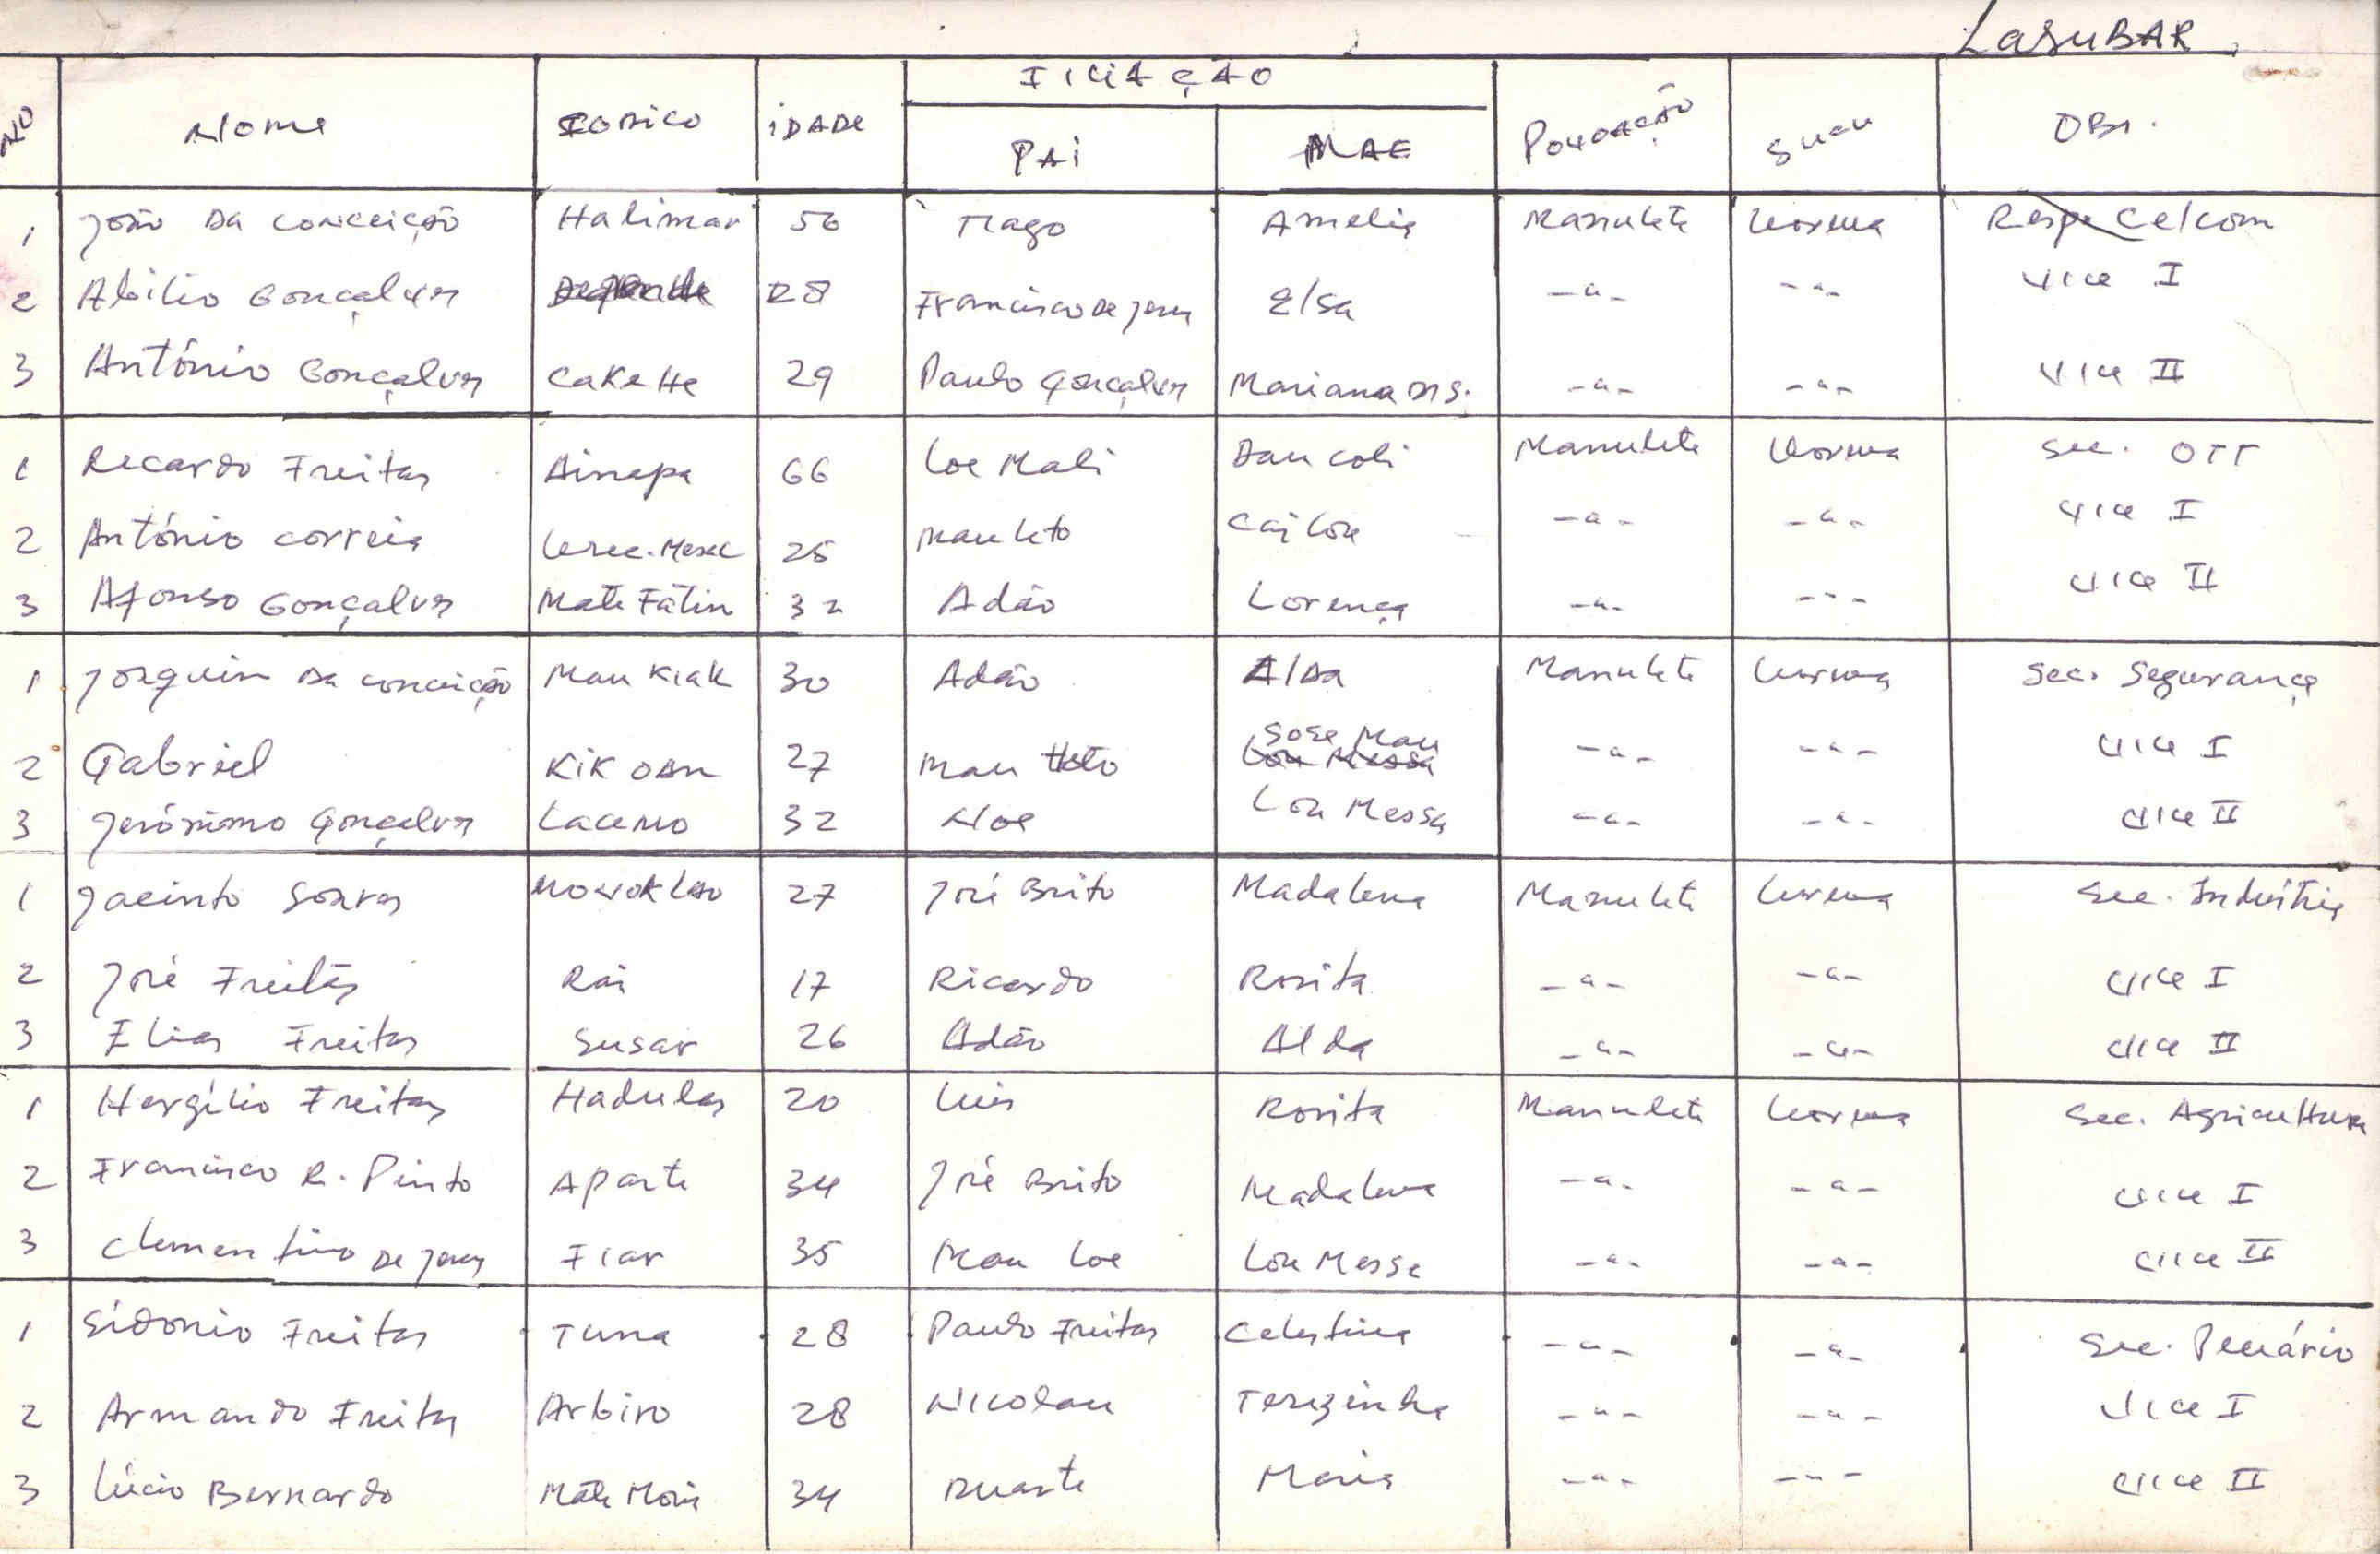 LASUBAR
FILIAÇÃO
NO NOME CODICO IDADE PAI MAE POVOAÇÃO SUCU OBS.
1 João Da Conceição Halimar 56 Tiago Amelia Manulete Lorwa Resp Celcom
2 Abilio Gonçalves 28 Francisco de Jesus Elsa -"- -"- Vice I
3 António Gonçalves Cakette 29 Paulo Gonçalves Mariana -"- -"- Vice II
1 Recardo Freitas Ainapa 66 Loe Mali Dau coli Manulete Sec. OTT
2 António Correia 25 Mau leto Cai Lou -"- -"- Vice I
3 Afonso Gonçalves Mate Fátin 32 Adão Lorença -"- -"- Vice II
1 Joaquim Da Conceição Mau Kiak 30 Adão Alda Manulete Sec. Segurança
2 Gabriel Kik oan 27 Mau Sose Mau -"- -"- Vice I
Lou Messa
3 Jerónimo Gonçalves 32 Noe Lou Messa -"- -"- Vice II
1 Jacinto Soares 27 José Brito Madalena Manulete Sec. Indústria
2 José Freitas Rai 17 Ricardo Rosita -"- -"- Vice I
3 Elias Freitas Susar 26 Adão Alda -"- -"- Vice II
1 Hergílio Freitas Hadulas 20 Luis Rosita Manulete Sec. Agricultura
2 Francisco R. Pinto Aparte 34 José Brito Madalena -"- -"- Vice I
3 Clementino De Jesus Fiar 35 Mau Loe Lou Messa -"- -"- Vice II
1 Sidonio Freitas Tuna 28 Paulo Freitas Celestina -"- -"- Sec. Pecuário
2 Armando Freitas Arbiro 28 Nicolau Terezinha -"- -"- Vice I
3 Lúcio Bernardo Mate Mori 34 Duarte Maria -"- -"- Vice II